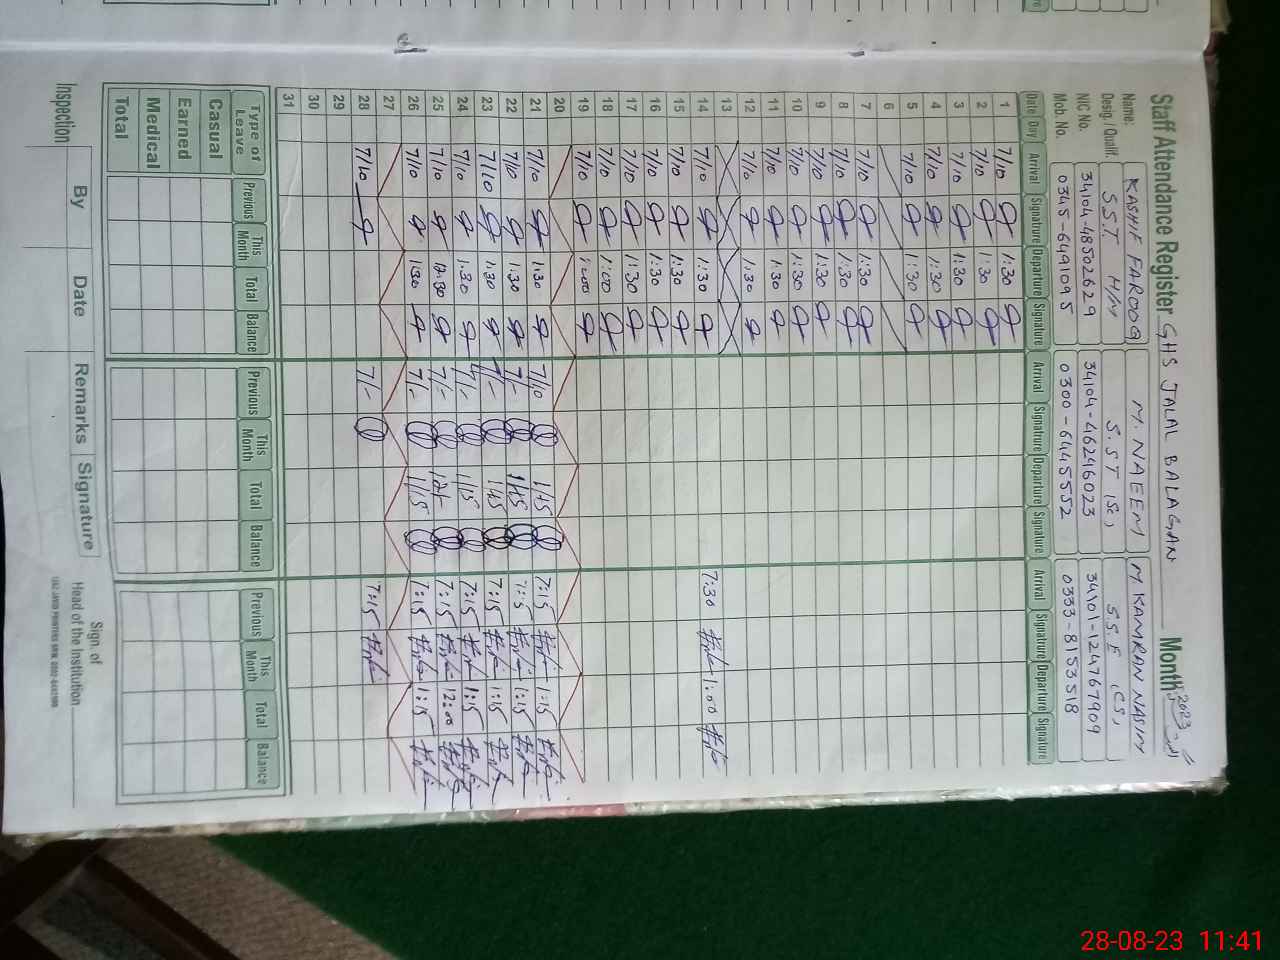 Staff Attendance Register GHS JALAL BALAGAN Month 2023
Name: KASHIF FAROOQ M. NAEEM M. KAMRAN NASIM
Desig./ Qualif. S.S.T H/M S.ST (Sc) S.S.E (CS)
NIC No. 34104-4850262-9 34104-46246023 34101-124767909
Mob. No. 0345-6491095 0300-6445552 0333-8153518
Date Day Arrival Signatrure Departure Signature Arrival Signatrure Departure Signature Arrival Signatrure Departure Signature
1 7/10 1:30
2 7/10 1:30
3 7/10 1:30
4 7/10 1:30
5 7/10 1:30
6
7 7/10 1:30
8 7/10 1:30
9 7/10 1:30
10 7/10 1:30
11 7/10 1:30
12 7/10 1:30
13
14 7/10 1:30 7:30 1:00
15 7/10 1:30
16 7/10 1:30
17 7/10 1:30
18 7/10 1:00
19 7/10
20
21 7/10 1:30 7/10 1/45 7:15 1:15
22 7/10 1:30 7/- 1/45 7:15 1:15
23 7/10 1:30 7/- 1/45 7:15 1:15
24 7/10 1:30 7/- 1/15 7:15 1:15
25 7/10 12:30 7/- 12/- 7:15 12:00
26 7/10 1:30 7/- 1/15 7:15 1:15
27
28 7/10 7/- 7:15
29
30
31
Type of Leave Previous This Month Total Balance Previous This Month Total Balance Previous This Month Total Balance
Casual
Earned
Medical
Total
Inspection By Date Remarks Signature
Sign. of
Head of the Institution
28-08-23 11:41